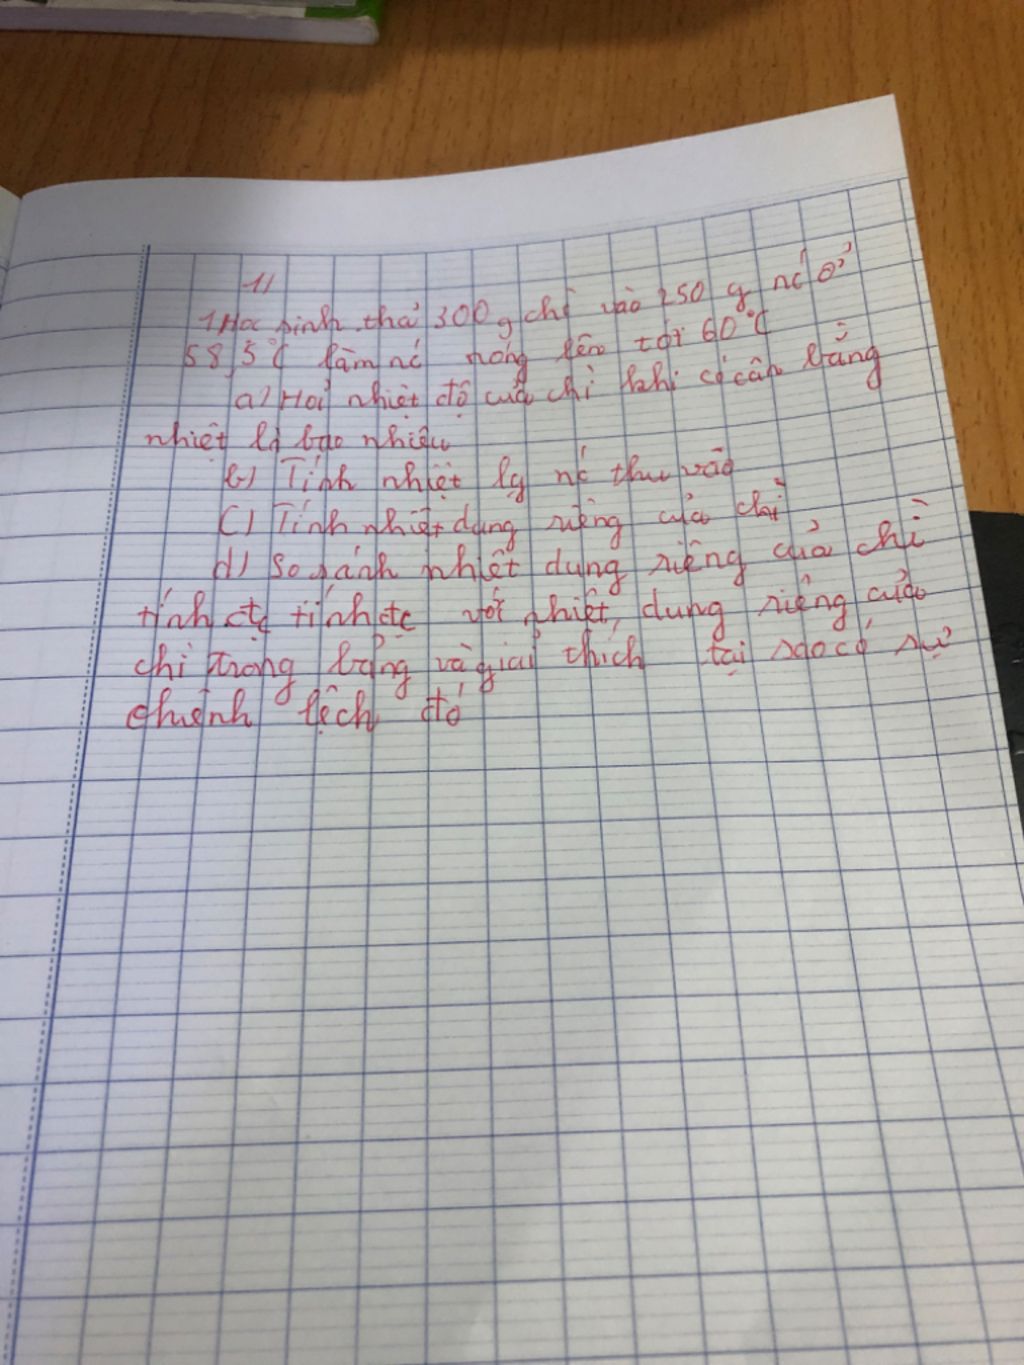 1/
1 Học sinh thả 300 g chì vào 250 g nc ở
58,5°C làm nc nóng lên tới 60°C
a) Hỏi nhiệt độ của chì khi có cân bằng
nhiệt là bao nhiêu
b) Tính nhiệt lg nc thu vào
c) Tính nhiệt dung riêng của chì
d) So sánh nhiệt dung riêng của chì
tính đc với nhiệt dung riêng của
chì trong bảng và giải thích tại sao có sự
chênh lệch đó